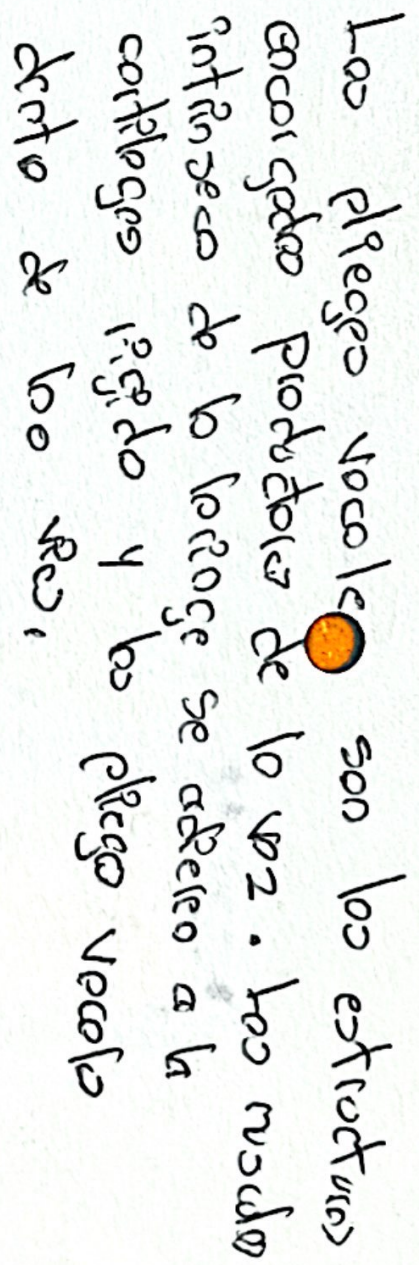 Los pliegos vocales son las estructuras
encargadas productoras de la voz. Los musculos
intrinseco de la laringe se adhieren a los
cartilagos y los pliegos vocales
dentro de los